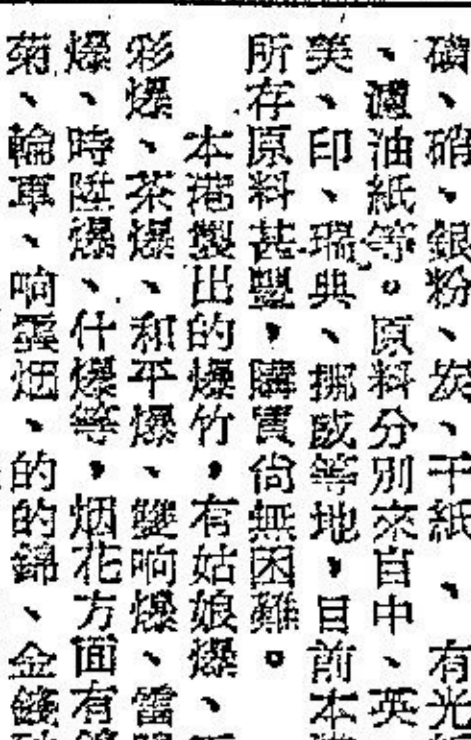 磺、硝、銀粉、炭、干紙、有光
、濾油紙等。原料分別來自中、英
美、印、瑞典、挪威等地，目前本
所存原料甚豐，購買尙無困難。
本港製出的爆竹，有姑娘爆、
彩爆、茶爆、和平爆、雙响爆、雷
爆、時陞爆、什爆等，烟花方面有
菊、輪車、响雲烟、的的錦、金錢